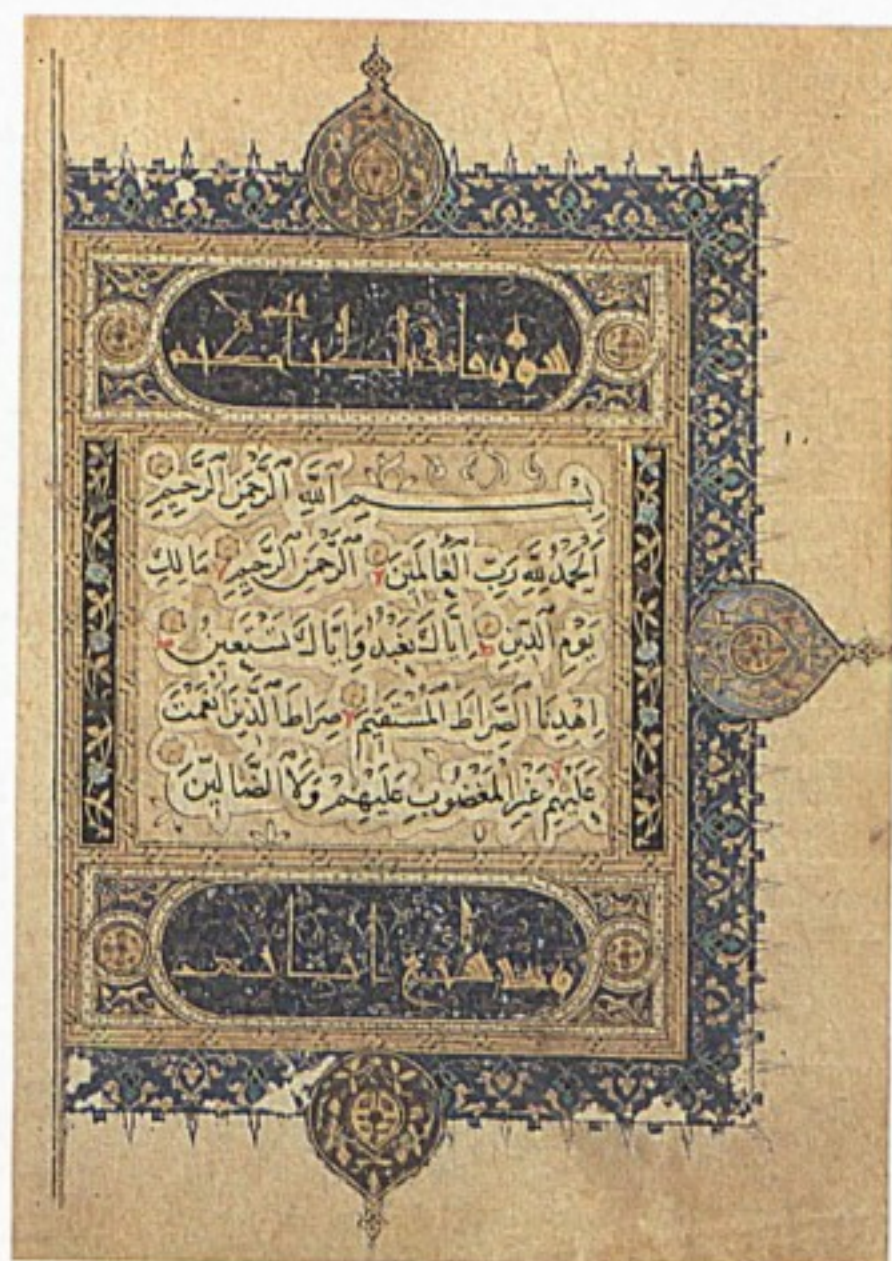 سورة فاتحة الكتاب
بِسْمِ ٱللَّهِ ٱلرَّحْمَٰنِ ٱلرَّحِيمِ
اَلْحَمْدُ لِلَّهِ رَبِّ ٱلْعَالَمِينَ ٱلرَّحْمَٰنِ ٱلرَّحِيمِ مَالِكِ
يَوْمِ ٱلدِّينِ إِيَّاكَ نَعْبُدُ وَإِيَّاكَ نَسْتَعِينُ
اِهْدِنَا ٱلصِّرَاطَ ٱلْمُسْتَقِيمَ صِرَاطَ ٱلَّذِينَ أَنْعَمْتَ
عَلَيْهِمْ غَيْرِ ٱلْمَغْضُوبِ عَلَيْهِمْ وَلَا ٱلضَّالِّينَ